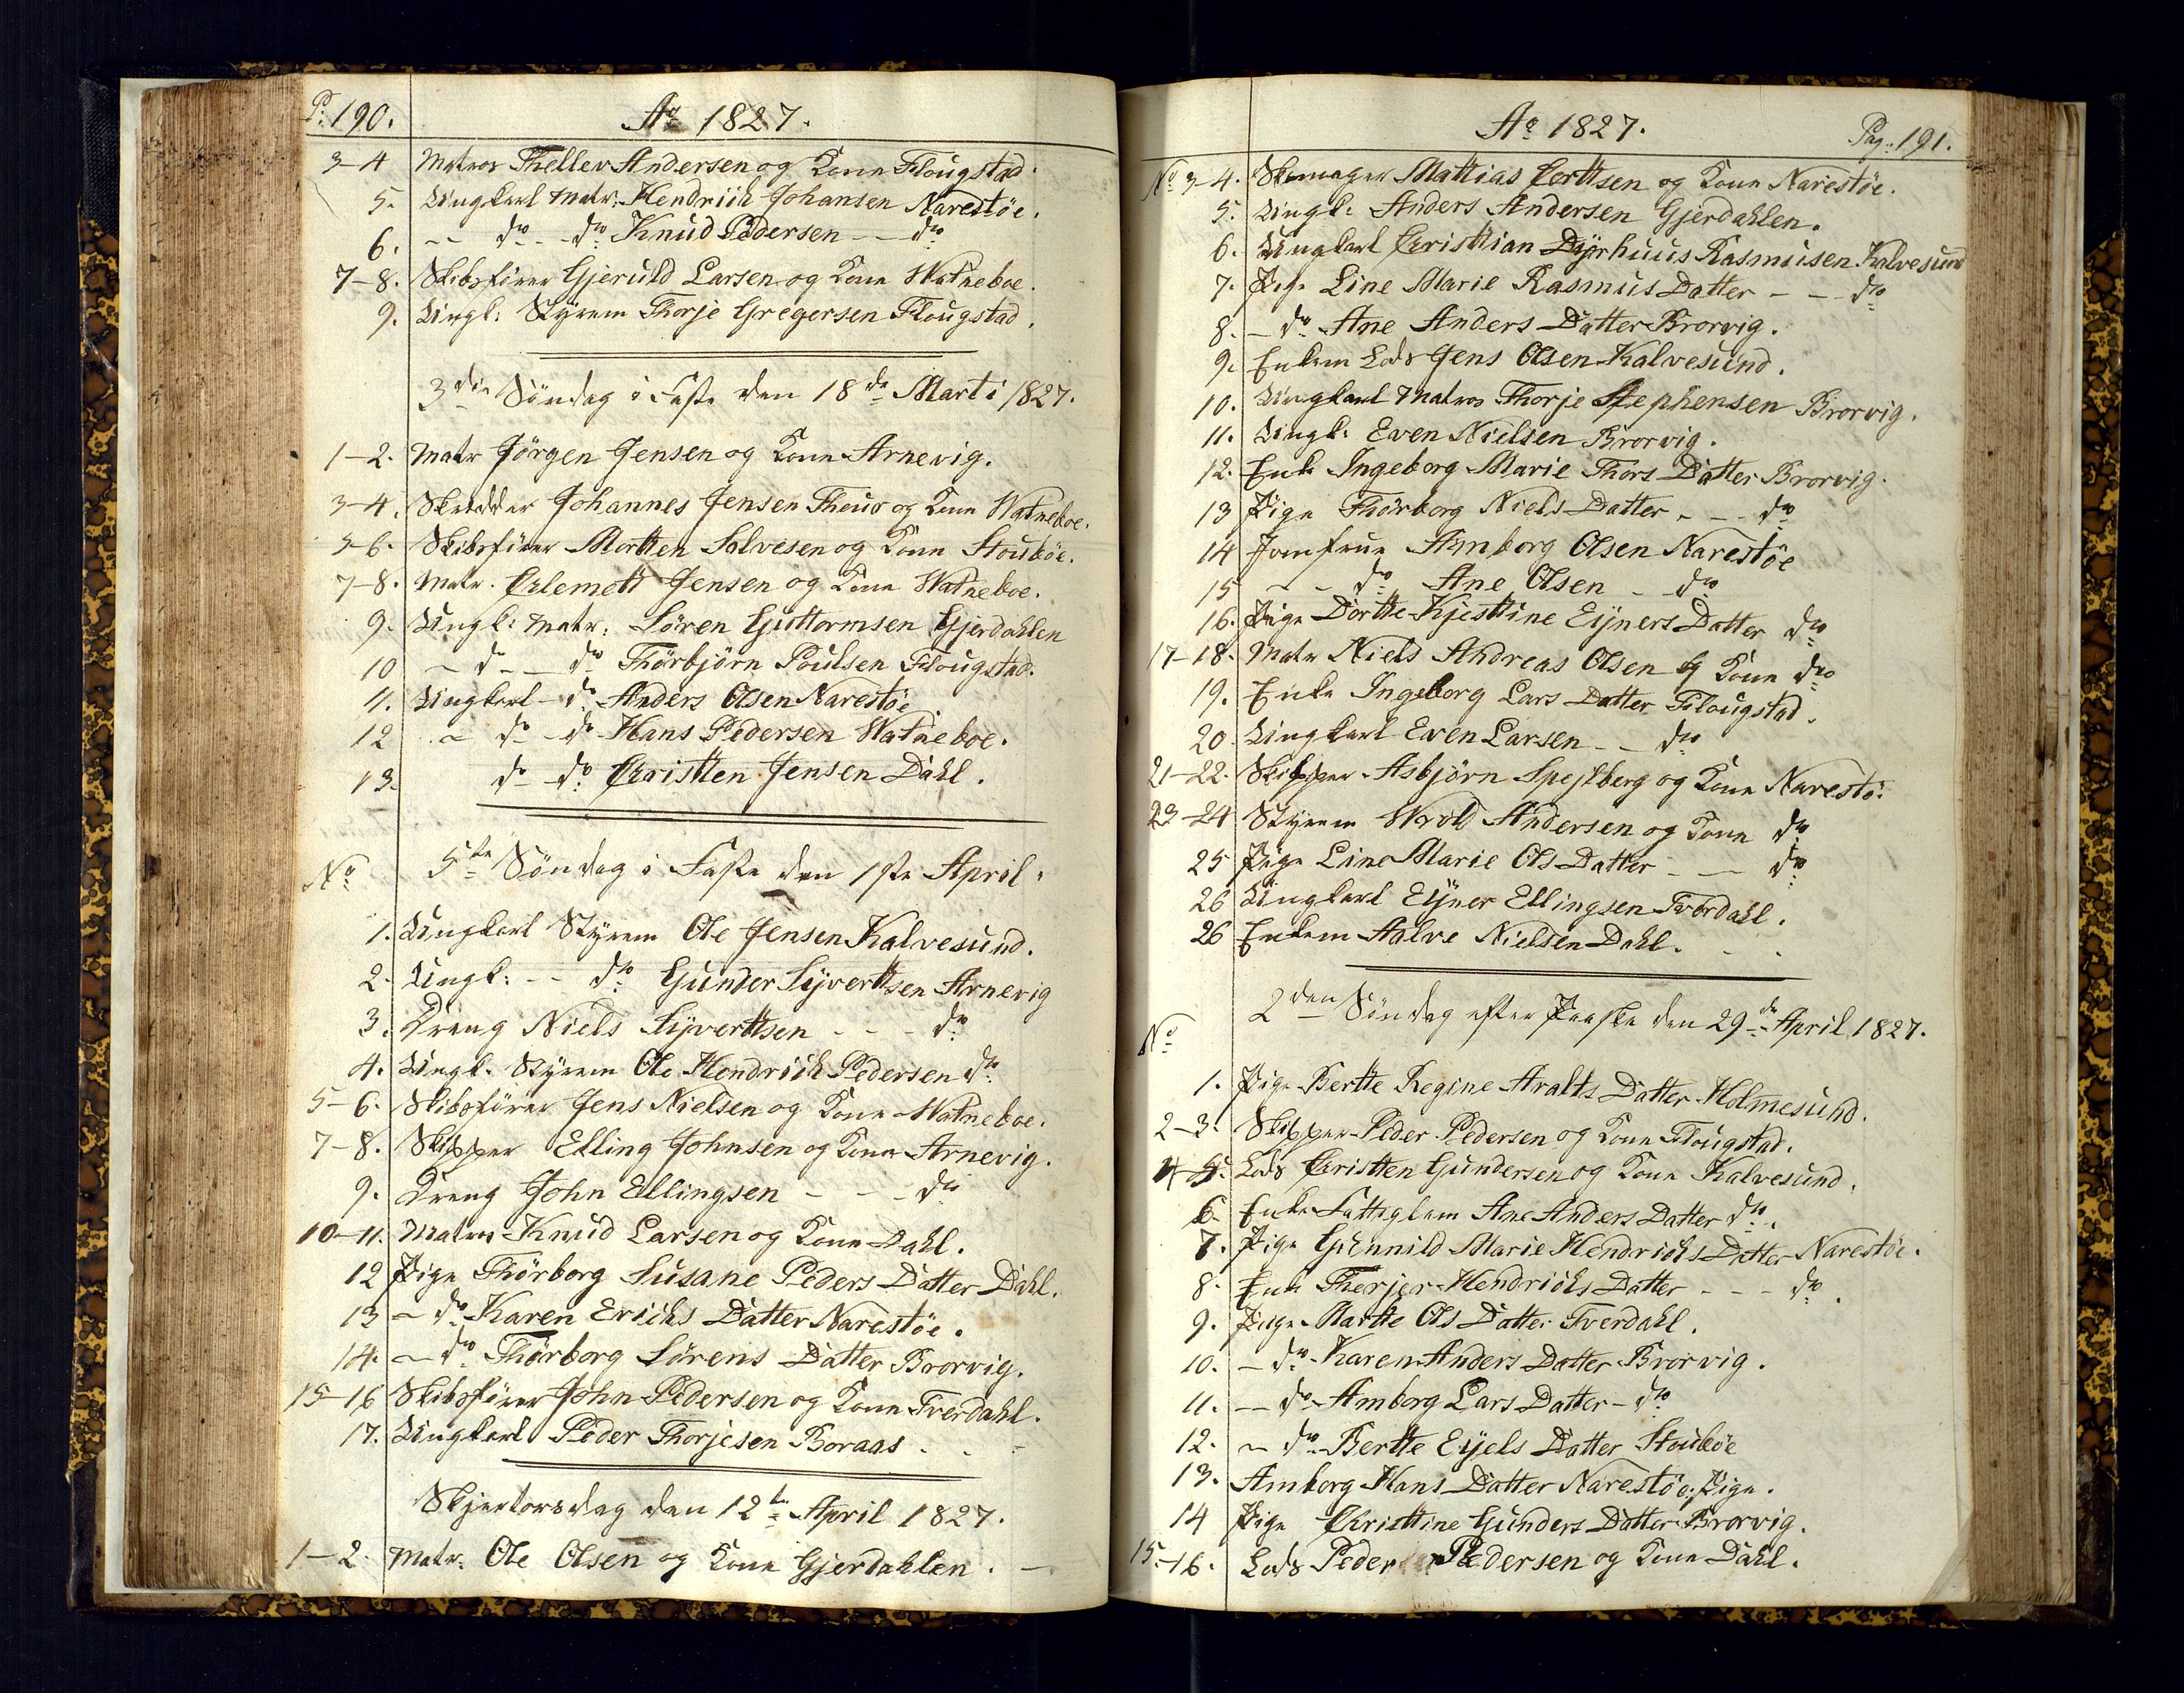 P: 190.
Ao 1827.
3-4 Matros Theller Andersen og Kone Flougstad.
5. Ungkarl Matr: Hendrich Johansen Narestöe.
6. -- do -- do Knud Pedersen -- do
7-8. Skibsfører Gjeruld Larsen og Kone Watneboe.
9. Ungk: Styrem Thorje Gregersen Flougstad.
3die Söndag i Faste den 18de Marti 1827.
1-2. Matr Jörgen Jensen og Kone Arnevig.
3-4. Skredder Johannes Jensen Theus og Kone Watneboe.
5-6. Skibsfører Mortten Salvesen og Kone Stouböe.
7-8. Matr. Clemett Jensen og Kone Watneboe.
9. Ungk: Matr: Sören Guttormsen Gjerdahlen
10 - d - - do Thörbjörn Poulsen Flougstad.
11. Ungkarl - do Anders Olsen Narestöe
12 - do - do Hans Pedersen Watneboe.
13. do - do Cristten Jensen Dahl.
No
5te Söndag i Faste den 1ste April.
1. Ungkarl Styrem Ole Jensen Kalvesund.
2. Ungk: -- do Gunder Syverttsen Arnevig
3. Dreng Niels Syverttsen - - - do
4. Ungk. Styrem Ole Hendrich Pedersen do
5-6. Skibsfører Jens Nielsen og Kone Watneboe.
7-8. Skipper Elling Johnsen og Kone Arnevig.
9. Dreng John Ellingsen - - - do
10-11. Matros Knud Larsen og Kone Dahl.
12 Pige Thörborg Susane Peders Datter Dahl.
13 - do Karen Erichs Datter Narestöe.
14. - do Thörborg Sörens Datter Brorvig.
15-16 Skibsfører John Pedersen og Kone Tverdahl.
17. Ungkarl Peder Thorjesen Boraas - - -
Skjertorsdag den 12te April 1827.
1-2. Matr: Ole Olsen og Kone Gjerdahlen. -
Ao 1827.
Pag: 191.
No 3-4. Skomager Mattias Corttsen og Kone Narestöe.
5. Ungk: Anders Andersen Gjerdahlen.
6. Ungkarl Cristian Dyrhuus Rasmusen Kalvesund
7. Pige Line Marie Rasmus Datter - - do
8. - do Ane Anders Datter Brorvig.
9. Enkem Lods Jens Olsen Kalvesund.
10. Ungkarl Matros Thorje Stephensen Brorvig.
11. Ungk: Even Nielsen Brorvig.
12. Enke Ingeborg Marie Thors Datter Brorvig.
13 Pige Thörborg Niels Datter - - - do
14 Jomfrue Amborg Olsen Narestöe
15 - - do Ane Olsen - do
16. Pige Dortte Kjesttine Eyners Datter do
17-18. Matr Niels Andreas Olsen og Kone do
19. Enke Ingeborg Lars Datter Flougstad.
20. Ungkarl Even Larsen - - do
21-22. Skipper Asbjörn Spejlberg og Kone Narestö.
23-24 Styrem Wrold Andersen og Kone do
25 Pige Line Marie Ols Datter - - do
26 Ungkarl Eyner Ellingsen Tverdahl.
26 Enkem Aalve Nielsen Dahl.
2den Söndag efter Paaske den 29de April 1827.
No
1. Pige Bertte Regine Aralts Datter Holmesund.
2-3. Skipper Peder Pedersen og Kone Flougstad.
4-5. Lods Cristten Gundersen og Kone Kalvesund.
6. Enke Fattiglem Ane Anders Datter do.
7. Pige Gunnild Marie Hendrichs Datter Narestöe.
8. Enke Therjer Hendrichs Datter - - - do.
9. Pige Martte Ols Datter Tverdahl.
10. - do Karen Anders Datter Brorvig.
11. -- do Amborg Lars Datter - do
12. - do Bertte Eyels Datter Stouböe
13. Amborg Hans Datter Narestöe, Pige.
14 Pige Cristtine Gunders Datter Brorvig.
15-16. Lods Peder Pedersen og Kone Dahl.